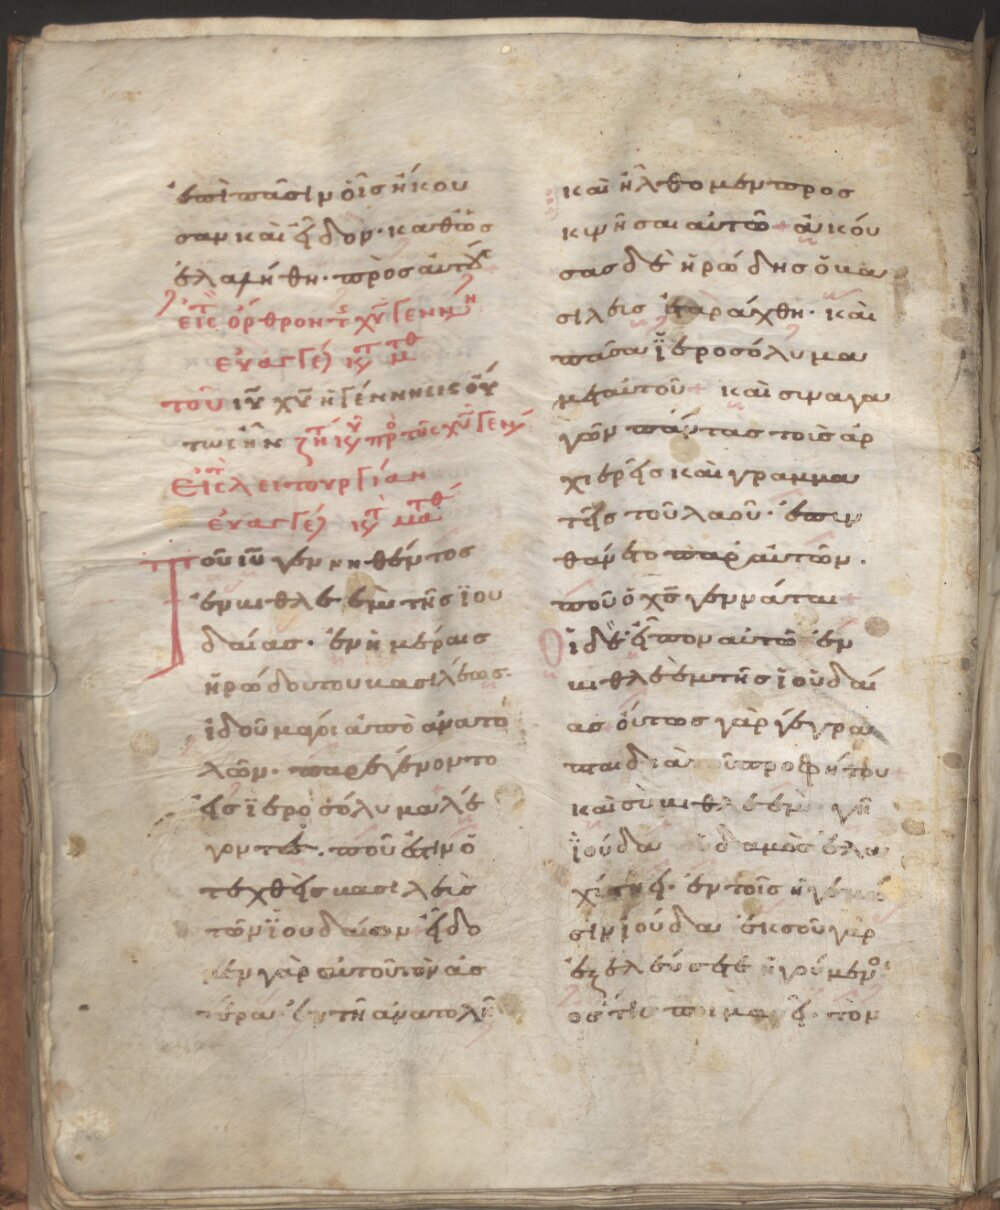 ἐπὶ πᾶσιν οἷς ἤκου
σαν καὶ εἶδον· καθὼς
ἐλαλήθη· πρὸς αὐτούς
εἰς τ ὄρθρον τ χυ γενν
εὐαγγέ κτ ματθ
τοῦ ιυ χυ ἡ γέννησις οὕ
τως ἦν ζητ κυ πρὸ τῆς χυ γενν
εἰς τ λειτουργίαν
εὐαγγέ κτ ματθ
Τοῦ ιυ γεννηθέντος
ἐν βιθλεὲμ τῆς ϊου
δαίας· ἐν ἡμέραις
ἡρώδου του βασιλέως·
ἰδοὺ μάγοι ἀπὸ ἀνατο
λῶν· παρεγένοντο
εἰς ϊεροσόλυμα λέ
γοντες· ποῦ ἐστιν ὁ
τεχθεὶς βασιλεὶς
τῶν ϊουδαίων εἴδο
μεν γὰρ αὐτοῦ τὸν ἀσ
τέρα· ἐν τῆ ἀνατολῆ
καὶ ἤλθομεν προς
κινῆσαι αὐτῶ ἀκού
σας δὲ ἡρώδης ὁ βα
σιλεὶς ἐταράχθη· καὶ
πᾶσα ϊεροσόλυμα
μεταὐτοῦ καὶ σιναγα
γῶν πάντας τοὶς ἀρ
χιερεῖς καὶ γραμμα
τεῖς τοῦ λαοῦ· ἐπιν
θάνετο παρ αὐτῶν·
ποῦ ὁ χς γεννᾶται
Οἱ δὲ εἶπον αὐτῶ ἐν
βιθλεὲμ τῆς ϊουδαί
ας οὕτως γὰρ γέγρα
πται διὰ τοῦ προφήτου
καὶ σὺ βιθλεὲμ γῆ
ϊούδα οὐδαμῶς ἐλα
χίστη εἶ· ἐν τοῖς ἡγεμό
σιν ϊούδα ἐκ σοῦ γὰρ
ἐξελεύσεται ἡγούμενο
ὅστις ποιμανεῖ· τὸν